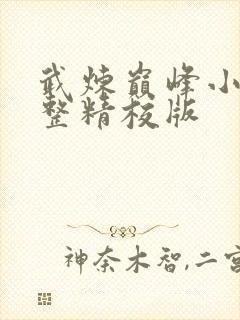 武炼巅峰小
整精校版
神奈木智,二宫